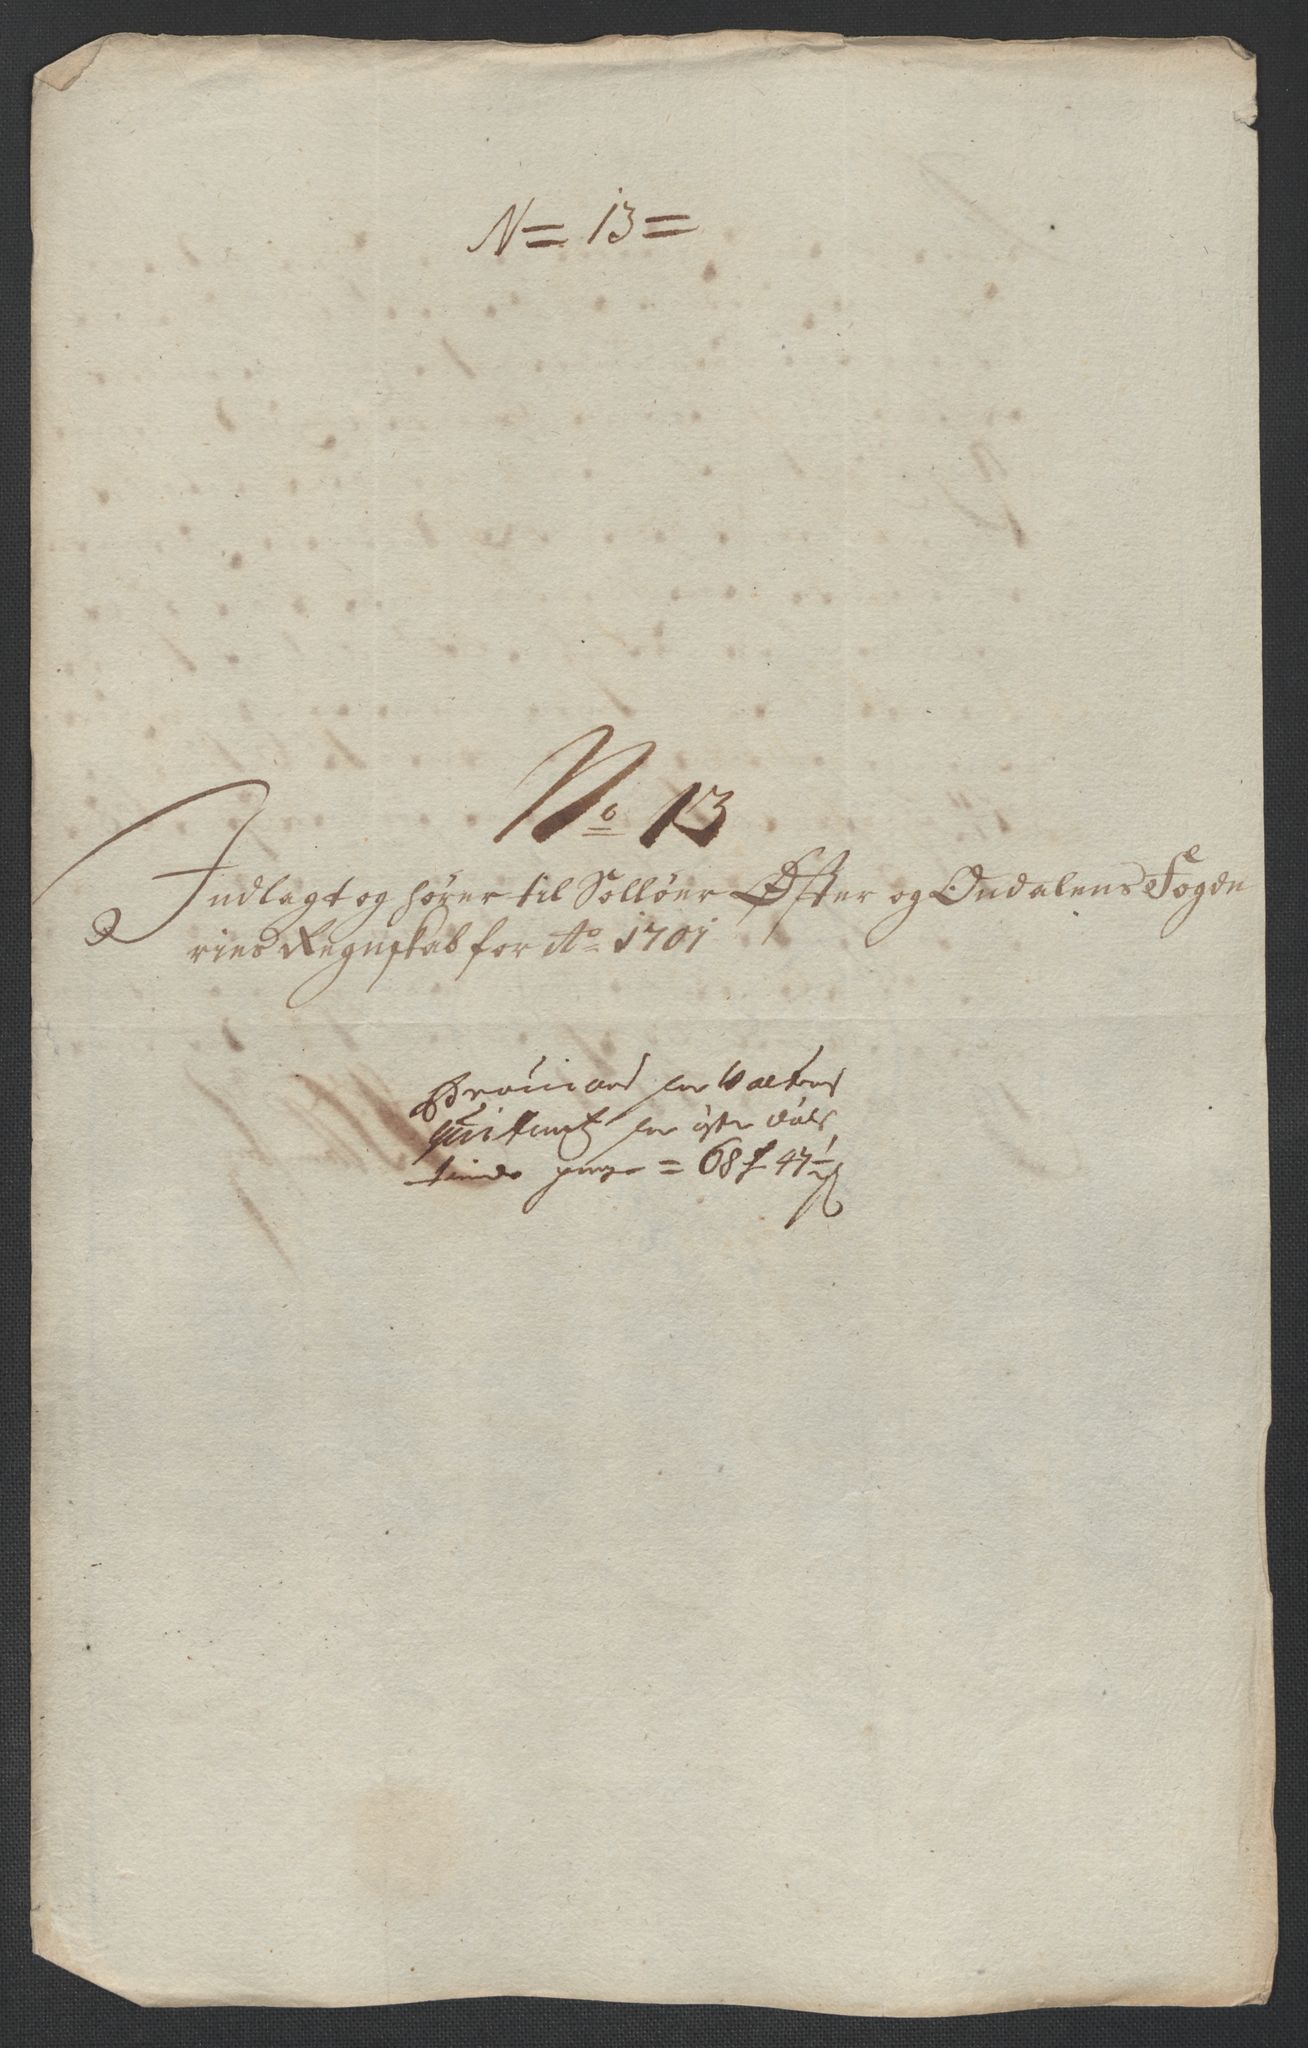 N= 13=
No 13
Indlagt og hører til Solløer Øster og Ondalens Fogde
ries Regnskab for Ao 1701
for
quitant for øster dals
tiende penge = 68 47½ ß